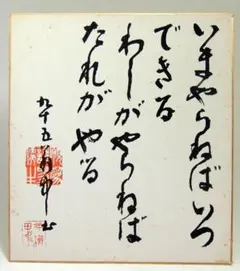 いまやらねばいつ
できる
わしがやらねば
たれがやる
九十五翁